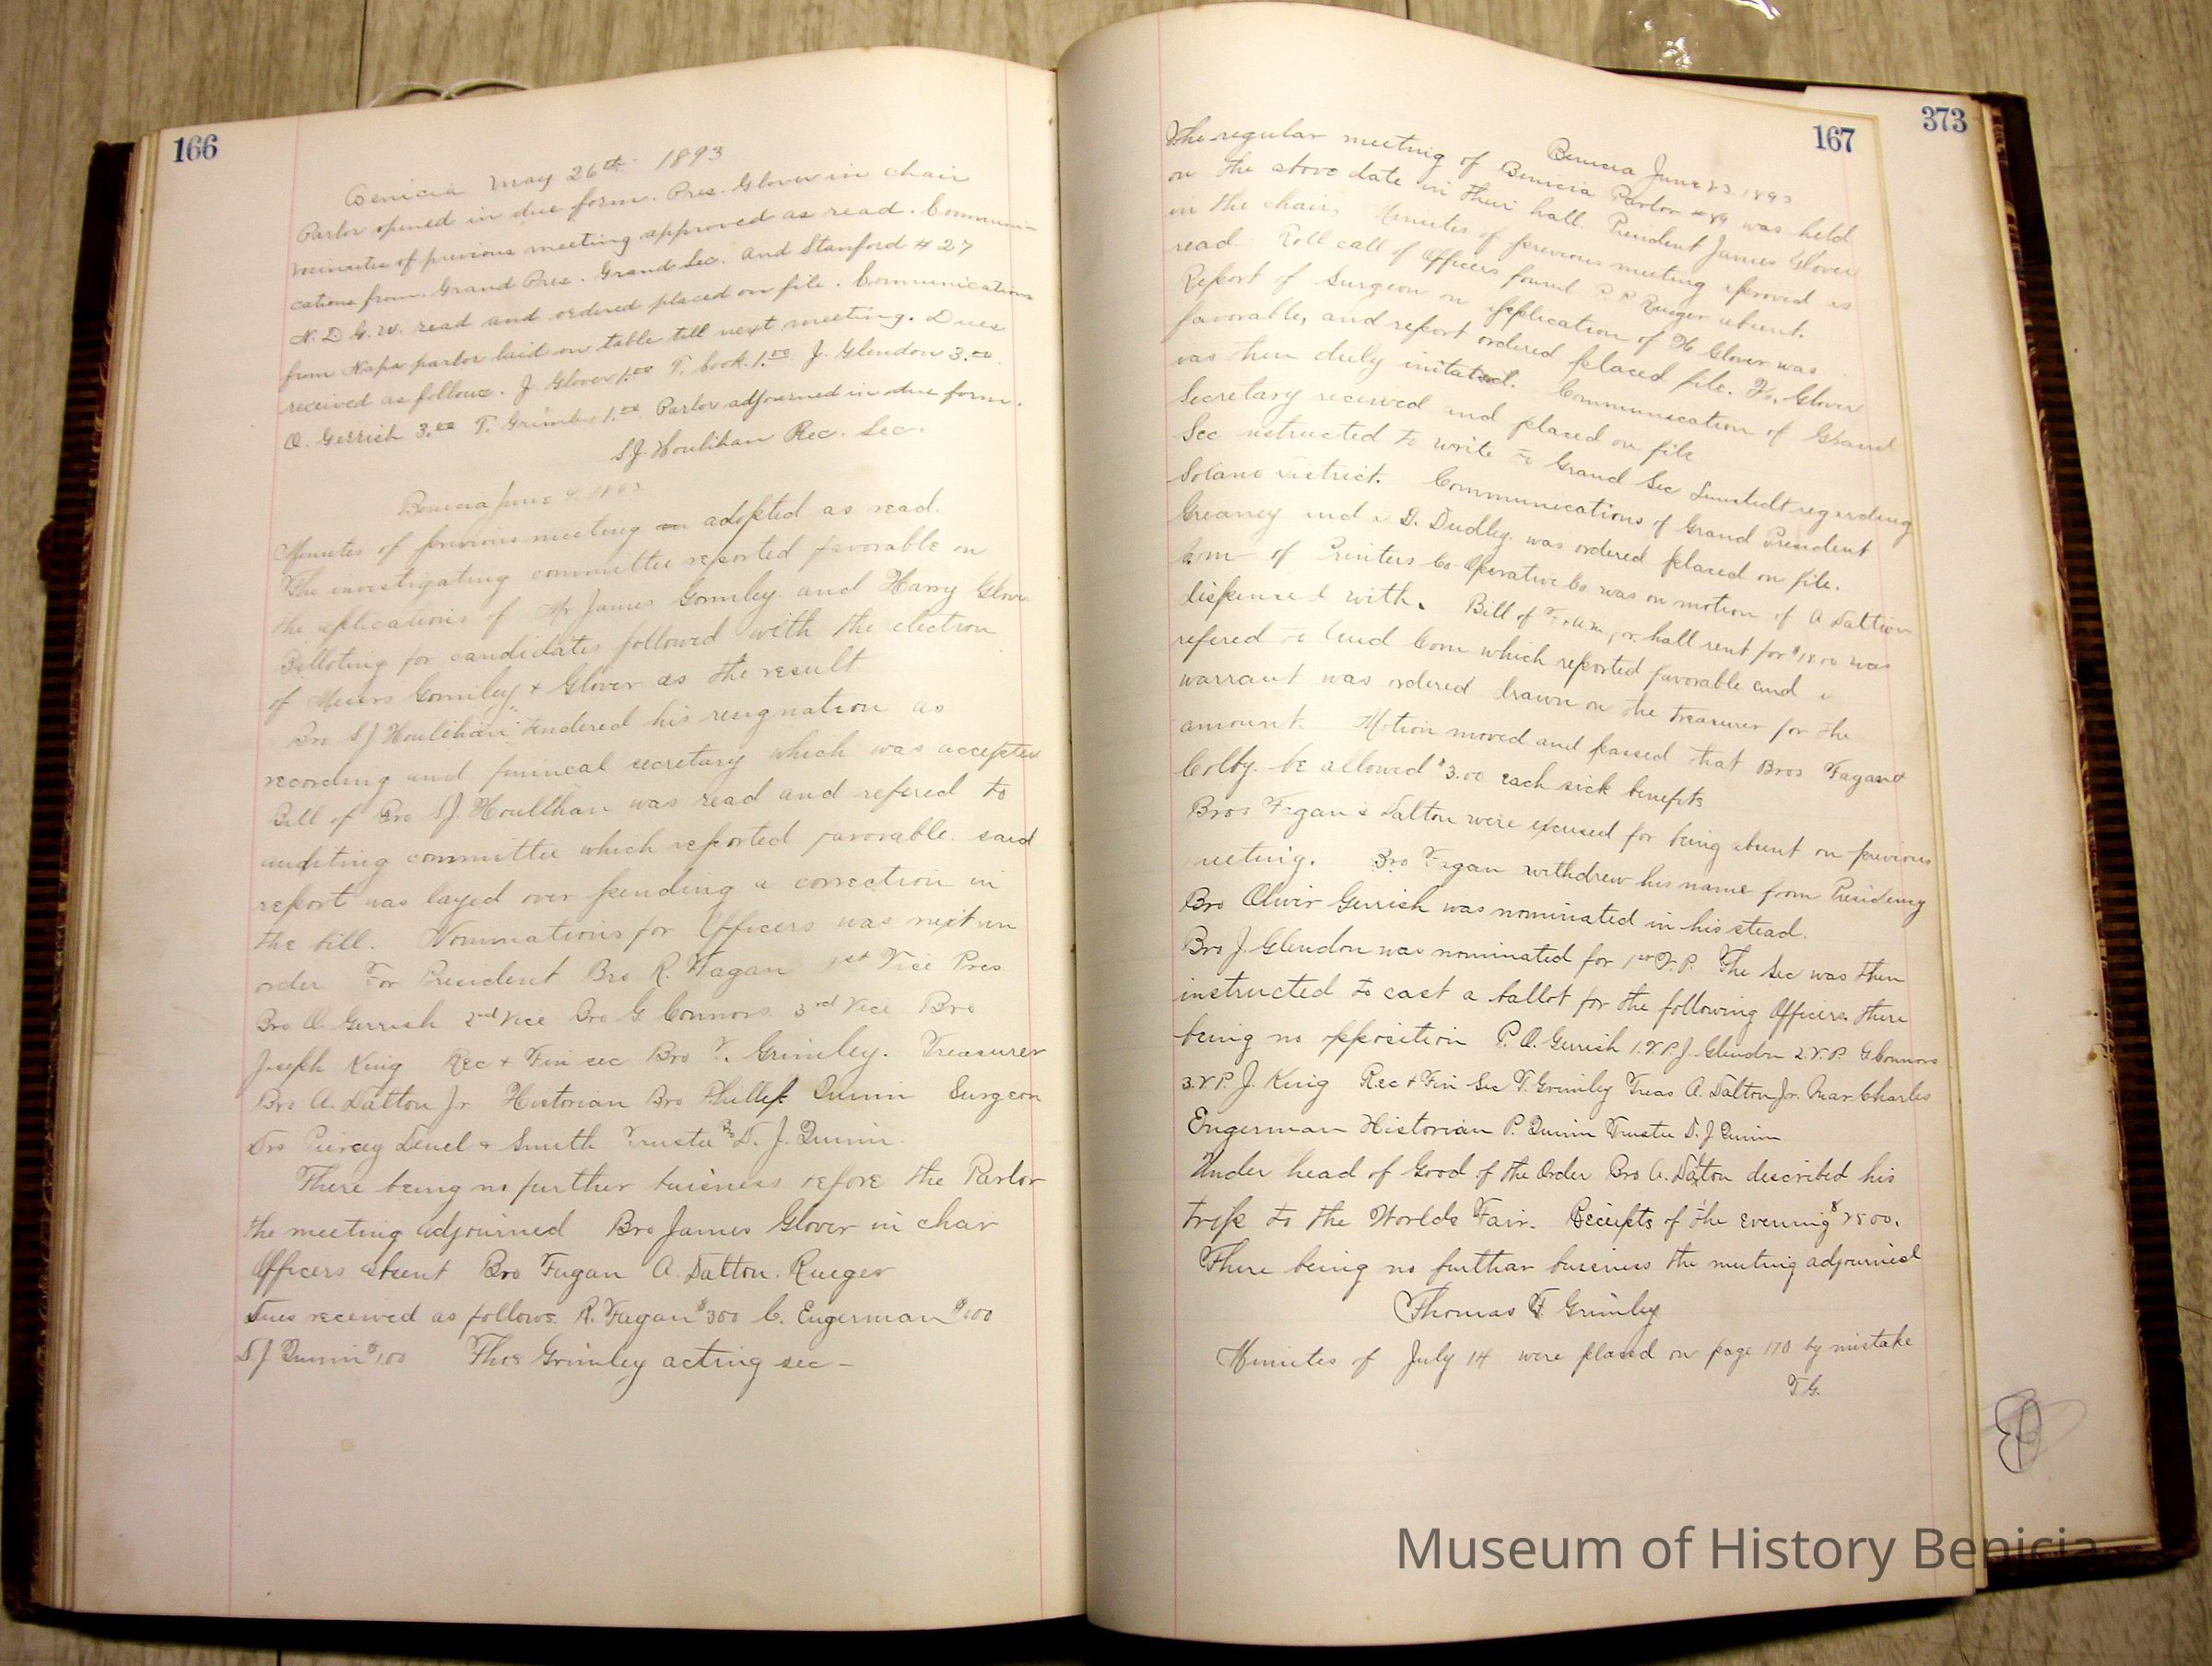 166
Benicia May 26th 1893
Parlor opened in due form. Pres. Glover in chair
minutes of previous meeting approved as read. Communi-
cations from Grand Pres. Grand Sec. and Stanford # 27
N. D. G. W. read and ordered placed on file. Communication
from Napa parlor laid on table till next meeting. Dues
received as follows. J. Glover 1.00 T. book. 1.00 J. Glendon 3.00
O. Gerrish 3.00 T. Grimley 1.00 Parlor adjourned in due form.
S.J. Houlihan Rec. Sec.
Benicia June 9. 1893
Minutes of previous meeting adopted as read.
The investigating committee reported favorable on
the aplications of Mr James Gormley and Harry Glover
Balloting for candidates followed with the election
of Messrs Gormley & Glover as the result
Bro S J Houlihan tendered his resignation as
recording and finincal secretary which was accepted
Bill of Bro S.J. Houlihan was read and refered to
auditing committee which reported favorable. said
report was layed over pending a correction in
the bill. Nominations for Officers was next in
order For President Bro R. Fagan 1st Vice Pres
Bro O. Gerrish 2nd Vice Bro G. Connors 3rd Vice Bro
Joseph King Rec & Fin sec Bro T. Grimley. Treasurer
Bro A. Dalton Jr Historian Bro Phillip Quinn Surgeon
Drs Peircey & Smith Trustee Bro D. J. Quinn
There being no further buisness before the Parlor
the meeting adjourned Bro James Glover in chair
Officers absent Bro Fagan A. Dalton. Rueger
Dues received as follows. R. Fagan $300 C. Engerman $1.00
D.J Quinn $1.00 Thos Grimley acting sec -
167
373
Benicia June 23 1893
The regular meeting of Benicia Parlor #89 was held
on the above date in their hall. President James Glover
in the chair, Minutes of previous meeting aproved as
read Roll call of Officers found P. P. Rueger absent.
Report of Surgeon on application of H Glover was
favorable, and report ordered placed file. H. Glover
was then duly initated. Communication of Grand
Secretary received and placed on file
Sec instructed to write to Grand Sec Lunstedt regarding
Solano District. Communications of Grand President
Greaney and D. Dudley. was ordered placed on file.
Com of Printers Co-Operative Co was on motion of A Dalton
dispensed with. Bill of F. & A.M. for hall rent for $18.00 was
refered to Aud Com which reported favorable and a
warrant was ordered drawn on the Treasurer for the
amount. Motion moved and passed that Bros Fagan &
Colby. be allowed $3.00 each sick benefits
Bros Fagan & Dalton were excused for being absent on previous
meeting. Bro Fagan withdrew his name from Presidency
Bro Oliver Gerrish was nominated in his stead.
Bro J. Glendon was nominated for 1st V. P. The Sec was then
instructed to cast a ballot for the following Officers. there
being no opposition P. O. Gerrish 1. V. P. J. Glendon 2. V. P. G Connors
3. V P. J. King Rec & Fin Sec T. Grimley Treas A. Dalton Jr. Mar Charles
Engerman Historian P. Quinn Trustee D. J Quinn
Under head of Good of the Order Bro A. Dalton described his
trip to the Worlds Fair. Reciepts of the evening $2500.
There being no furthar buisness the meeting adjourned
Thomas F. Grimley
Minutes of July 14 were placed on page 170 by mistake
T G.
Museum of History Benicia